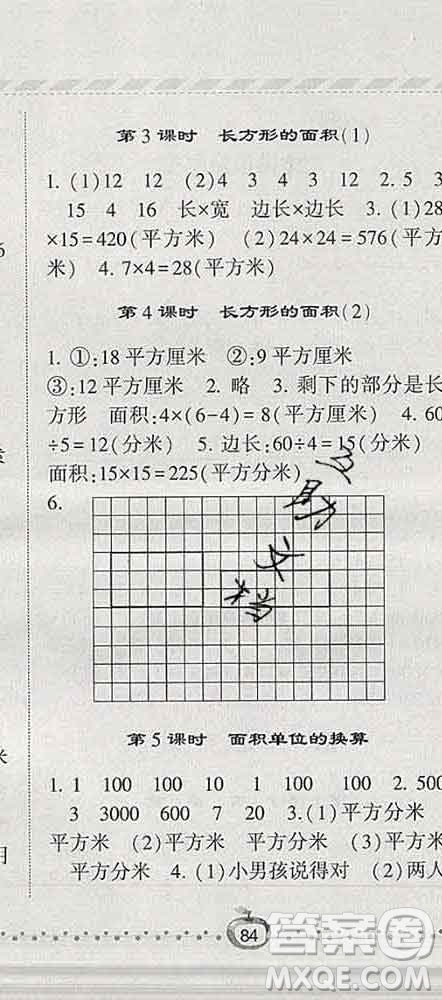 第3课时 长方形的面积(1)
1. (1)12 12 (2)4 3 4 3 12 2. 5 3
15 4 16 长×宽 边长×边长 3. (1)28
×15=420(平方米) (2)24×24=576(平方
米) 4. 7×4=28(平方米)
第4课时 长方形的面积(2)
1. ①:18平方厘米 ②:9平方厘米
③:12平方厘米 2. 略 3. 剩下的部分是长
方形 面积:4×(6-4)=8(平方米) 4. 60
÷5=12(分米) 5. 边长:60÷4=15(分米)
面积:15×15=225(平方分米)
6.
第5课时 面积单位的换算
1. 1 100 100 10 1 100 100 2. 500
3 3000 600 7 20 3. (1)平方分米
平方米 (2)平方米 平方分米 (3)平方米
平方分米 4. (1)小男孩说得对 (2)两人
84
答案圈
MXQE.COM